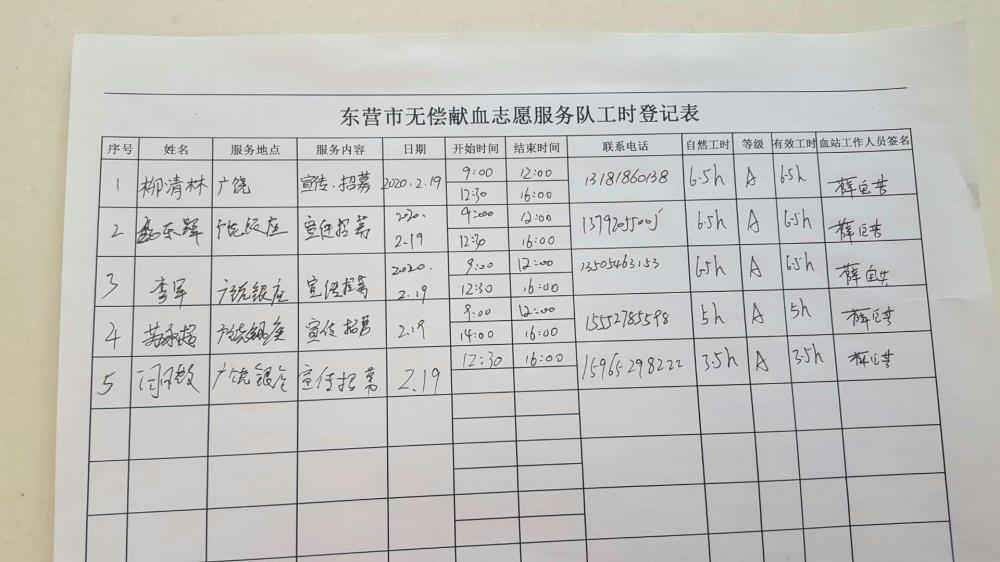 东营市无偿献血志愿服务队工时登记表
序号 姓名 服务地点 服务内容 日期 开始时间 结束时间 联系电话 自然工时 等级 有效工时 血站工作人员签名
1 柳清林 广饶 宣传、招募 2020.2.19 9:00 12:00 13181860138 6.5h A 6.5h
12:30 16:00
2 广饶银座 宣传招募 2020. 2.19 9:00 12:00 13792055005 6.5h A 6.5h
12:30 16:00
3 李军 广饶银座 宣传招募 2020. 2.19 9:00 12:00 13505463153 6.5h A 6.5h
12:30 16:00
4 广饶银座 宣传招募 2.19 9:00 12:00 15552785598 5h A 5h
14:00 16:00
5 广饶银座 宣传招募 2.19 12:30 16:00 15965298222 3.5h A 3.5h